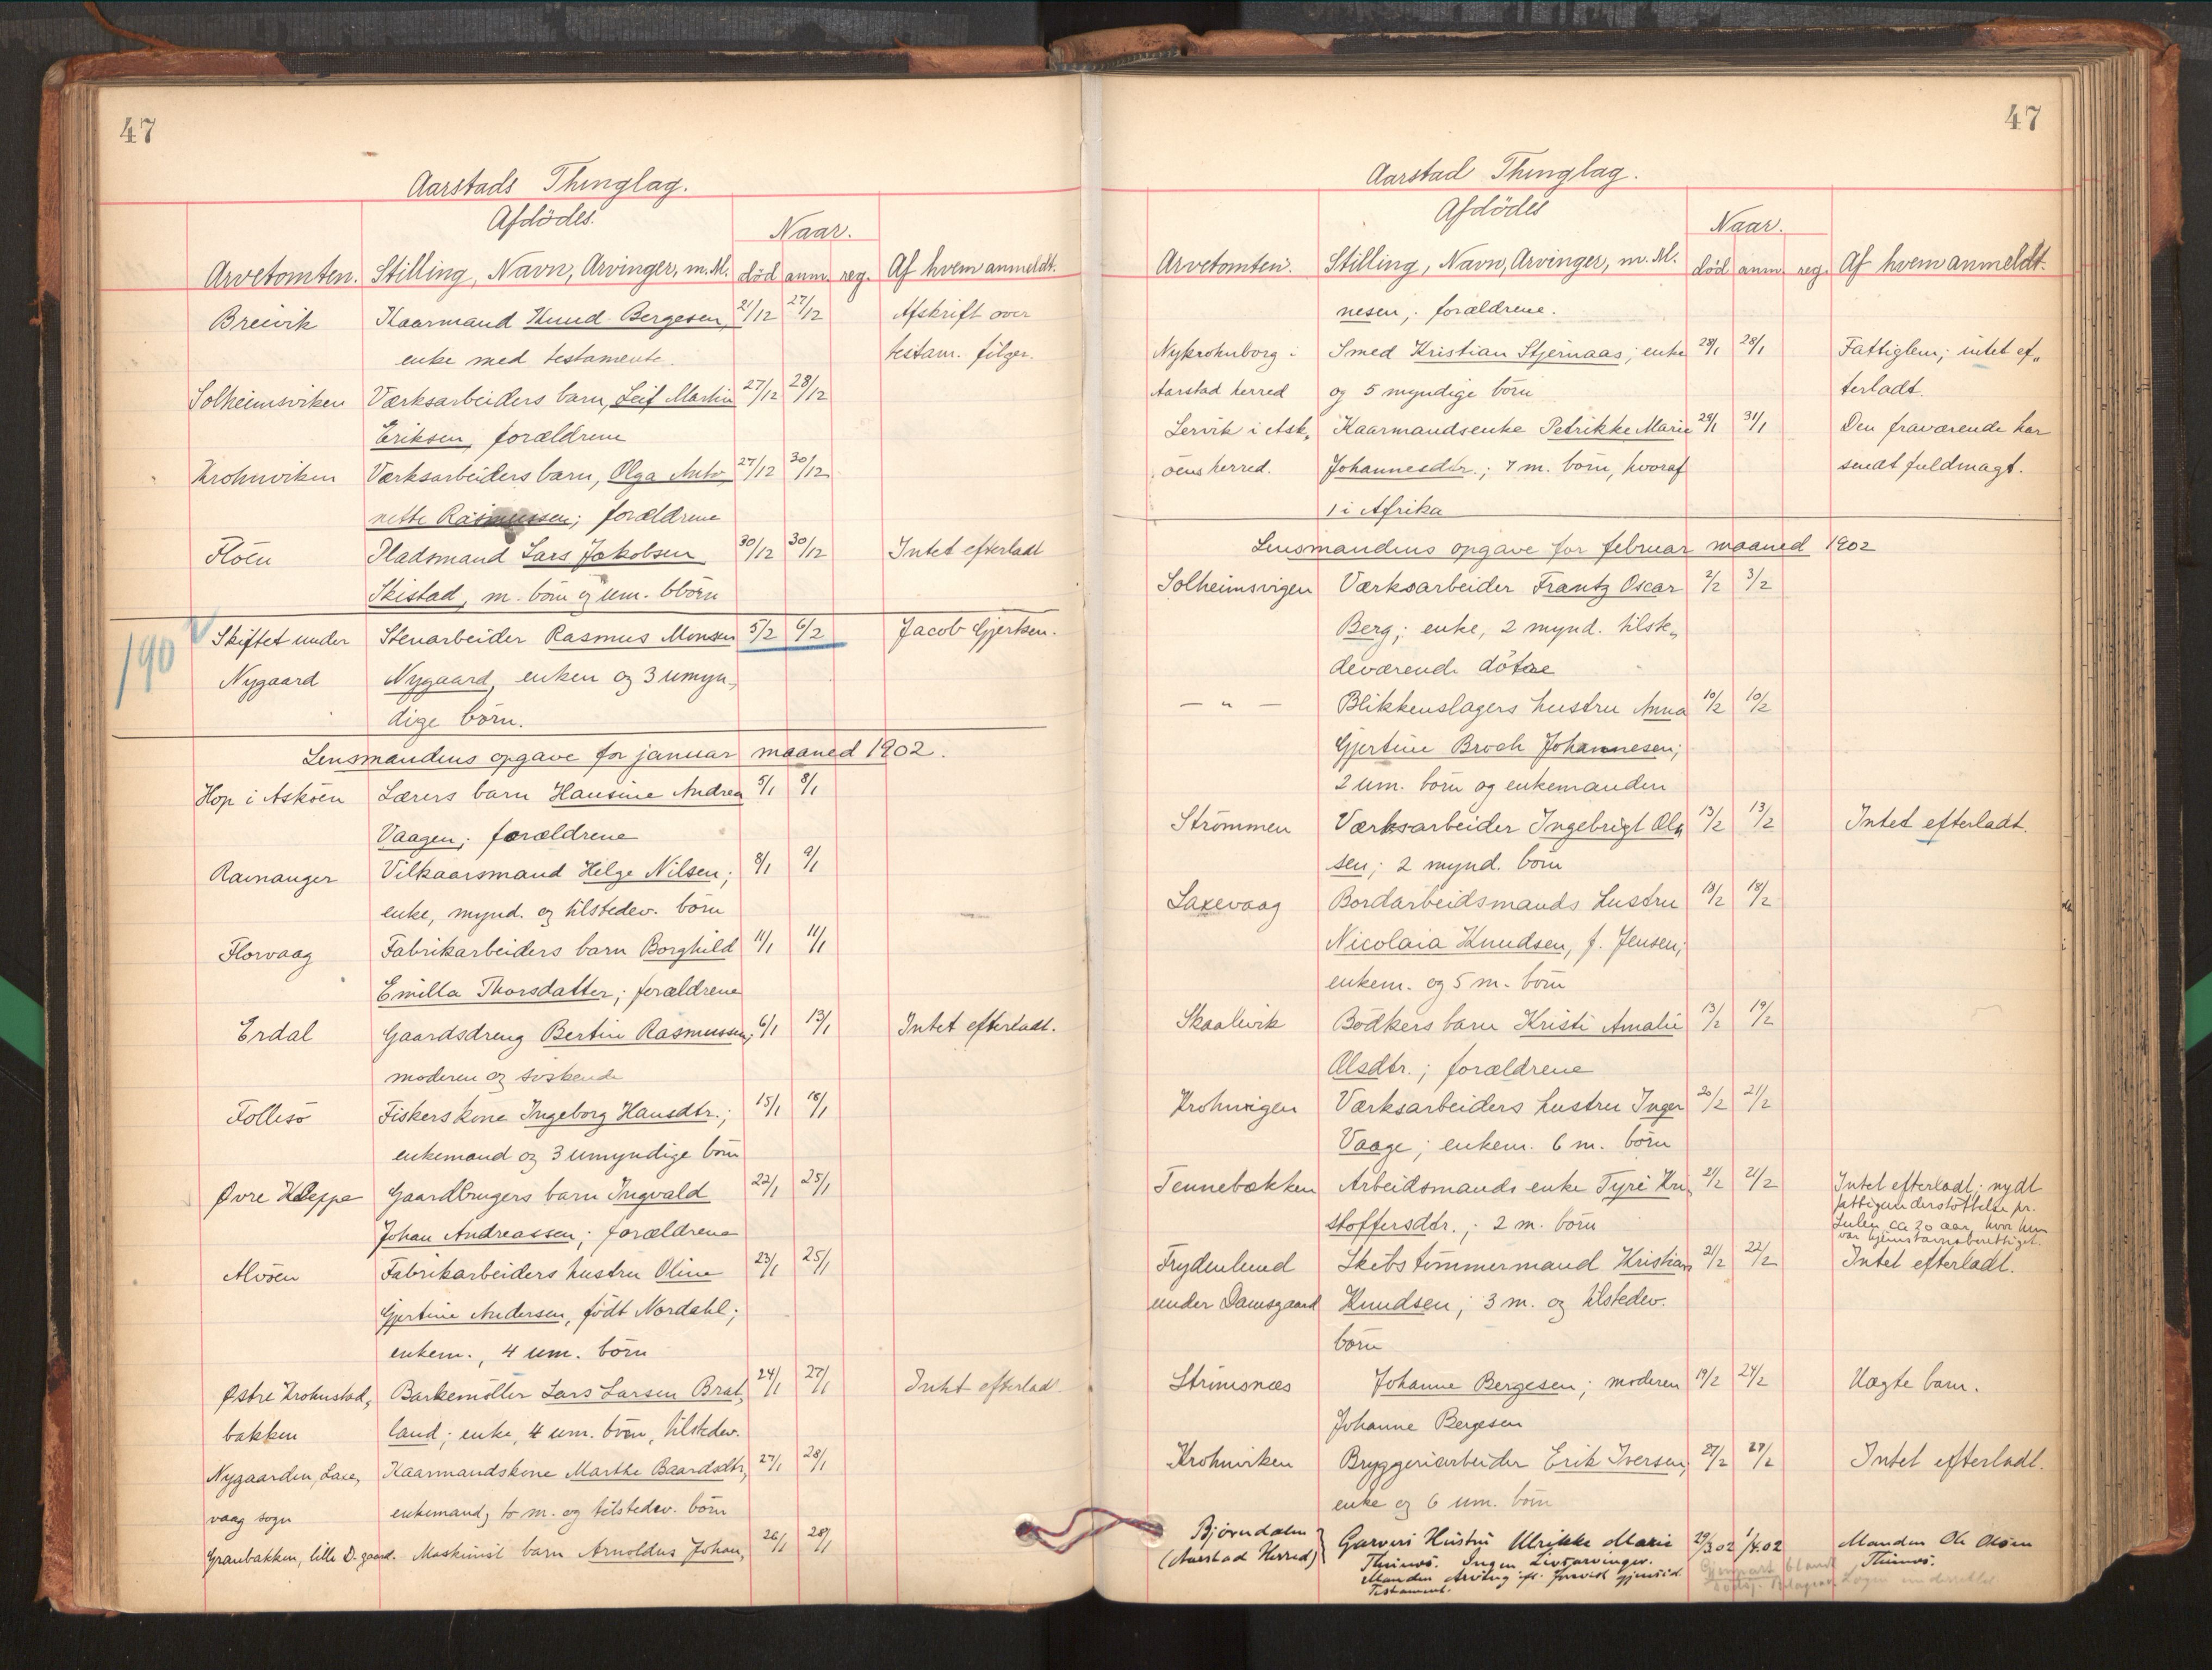 47
Aarstads Thinglag.
Afdödes.
Naar.
Arvetomten. Stilling, Navn, Arvinger, m.M. död anm. reg. Af hvem anmeldt.
Breivik Kaarmand Knud Bergesen, 21/12 27/12 Afskrift over
enke med testamente. testam. følger.
Solheimsviken Værksarbeiders barn, Leif Martin 27/12 28/12
Eriksen, forældrene
Krohnviken Værksarbeiders barn, Olga Anto 27/12 30/12
nette Rasmussen; forældrene
Flöen Pladsmand Lars Jakobsen 30/12 30/12 Intet efterladt
Skistad, m. börn og um. bbörn
190
Skiftet under Stenarbeider Rasmus Monsen 5/2 6/2 Jacob Gjertsen.
Nygaard Nygaard, enken og 3 umyn-
dige börn.
Lensmandens opgave for januar maaned 1902.
Hop i Asköen Lærers barn Hansine Andrea 5/1 8/1
Vaagen; forældrene
Ramanger Vilkaarsmand Helge Nilsen; 8/1 9/1
enke, mynd. og tilstedev. börn
Florvaag Fabrikarbeiders barn Borghild 11/1 11/1
Emilla Thorsdatter; forældrene
Erdal Gaardsdreng Bertin Rasmussen; 6/1 13/1 Intet efterladt.
moderen og söskende
Follesö Fiskers kone Ingeborg Hansdtr.; 15/1 18/1
enkemand og 3 umyndige börn
Øvre Kleppe Gaardbrugers barn Ingvald 22/1 25/1
Johan Andreassen; forældrene
Alvöen Fabrikarbeiders hustru Oline 23/1 25/1
Gjertine Andersen, födt Nordahl;
enkem., 4 um. börn
Østre Krohnstad„ Barkemöller Lars Larsen Brat„ 24/1 27/1 Intet efterladt
bakken land; enke, 4 um. börn, tilstedev.
Nygaarden, Laxe„ Kaarmandskone Marthe Baardsdtr, 27/1 28/1
vaag sogn enkemand, to m. og tilstedev. börn
Granbakken, lille D.gaard. Maskinist barn Arnoldus Johan„ 26/1 28/1
47
Aarstad Thinglag.
Afdödes
Naar.
Arvetomten. Stilling, Navn, Arvinger, m. M. död anm. reg. Af hvem anmeldt.
nesen; forældrene.
Nykrohnborg i Smed Kristian Stjernaas; enke 28/1 28/1 Fattiglem; intet ef„
Aarstad herred og 5 myndige börn terladt.
Lervik i Ask„ Kaarmandsenke Petrikke Marie 29/1 31/1 Den fraværende har
öens herred. Johannesdtr.; 7 m. börn, hvoraf sendt fuldmagt.
1 i Afrika
Lensmandens opgave for februar maaned 1902
Solheimsvigen Værksarbeider Frantz Oscar 2/2 3/2
Berg; enke, 2 mynd. tilste„
deværende dötre
— " — Blikkenslagers hustru Anna 10/2 10/2
Gjertine Broch Johannesen;
2 um. börn og enkemanden
Strömmen Værksarbeider Ingebrigt Ol„ 13/2 13/2 Intet efterladt.
sen; 2 mynd. börn
Laxevaag Bordarbeidsmands hustru 13/2 18/2
Nicolaia Knudsen, f. Jensen;
enkem. og 5 m. börn
Skaalevik Bödkers barn Kristi Amalie 13/2 19/2
Olsdtr.; forældrene
Krohnvigen Værksarbeiders hustru Inger 20/2 21/2
Vaage; enkem. 6 m. börn
Tennebækken Arbeidsmands enke Tyri Kri„ 21/2 21/2 Intet efterladt; nydt
stoffersdtr.; 2 m. börn fattigunderstöttelse pr.
Sulen ca 30 aar, hvor hun
var hjemstavnsberettiget.
Frydenlund Skibstömmermand Kristian 21/2 22/2 Intet efterladt.
under Damsgaard Knudsen; 3 m. og tilstedev.
börn
Strimsnæs Johanne Bergesen; moderen 19/2 24/2 Uægte barn.
Johanne Bergesen
Krohnviken Bryggeriarbeider Erik Iversen, 27/2 27/2 Intet efterladt.
enke og 6 um. börn
Björndalen Garveri Hustru Ulrikke Marie 29/3 02 1/4 02 Manden Ole Olsen
(Aarstad Herred) Thunes. Ingen Livsarvinger. Thunes.
Manden Arving efter gjensid.
Testament.
Gjenpart blandt